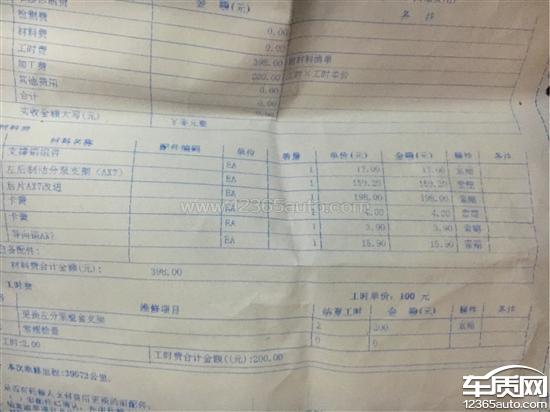 金 额(元)
备 注
检测费 0.00
材料费 0.00
工时费 0.00
加工费 398.00 附材料清单
其他费用 200.00 工时×工时单价
合计 0.00
实收金额大写(元) ￥零元整
材料费
材料名称 配件编码 单位 数量 单价(元) 金额(元) 操作 备注
支撑销组件 EA 1 17.00 17.00 索赔
左后制动分泵支架（AX7） EA 1 159.20 159.20 索赔
后片AX7改进 EA 1 198.00 198.00 索赔
卡簧 EA 1 4.00 4.00 索赔
卡簧 EA 1 3.90 3.90 索赔
导向销AX7 EA 1 15.90 15.90 索赔
材料费合计金额(元): 398.00
工时费 工时单价: 100 元
维修项目 结算工时 金 额(元) 操作 备注
更换左分泵总支架 2 200 索赔
常规检查 0 0
工时:2.00 工时费合计金额((元):200.00
本次维修里程:39672公里。
www.12365auto.com
车质网
12365auto.com